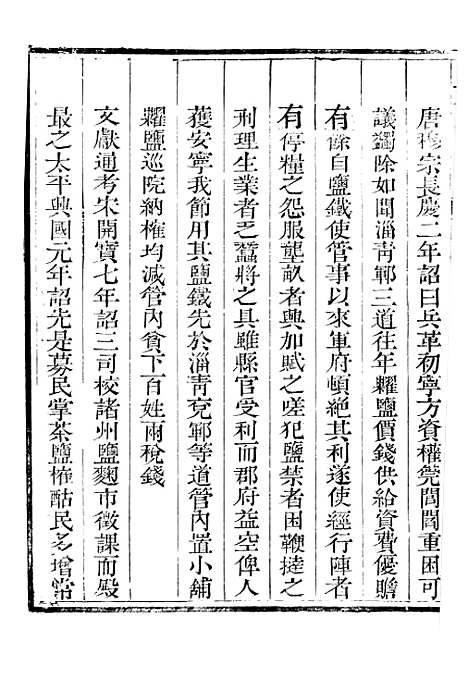 唐穆宗長慶二年詔曰兵革初寧方資權筦閭閻重困可
議蠲除如聞淄青鄆三道往年糶鹽價錢供給資費優贍
有餘自鹽鐵使管事以來軍府頓絕其利遂使經行陣者
有停糧之怨服壟畝者興加賦之嗟犯鹽禁者困鞭撻之
刑理生業者乏蠶將之具雖縣官受利而郡府益空俾人
獲安寧我節用其鹽鐵先於淄青兖鄆等道管內置小舖
糶鹽巡院納榷均減管內貧下百姓兩稅錢
文獻通考宋開寶七年詔三司校諸州鹽麴市徵課而殿
最之太平興國元年詔先是募民掌茶鹽榷酤民多增常